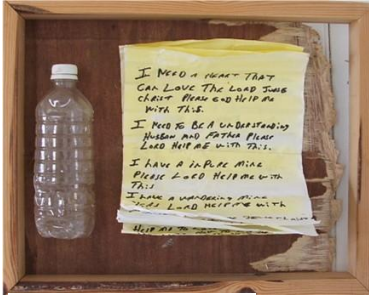 I NEED A HEART THAT
CAN LOVE THE LORD JUSE
CHRIST PLEASE GOD HELP ME
WITH THIS.
I NEED TO BE A UNDERSTANDING
HUSBON AND FATHER PLEASE
LORD HELP ME WITH THIS.
I HAVE A INPURE MINE
PLEASE LORD HELP ME WITH
THIS
I HAVE A WANDERING MINE
LORD HELP ME WITH
HELP ME